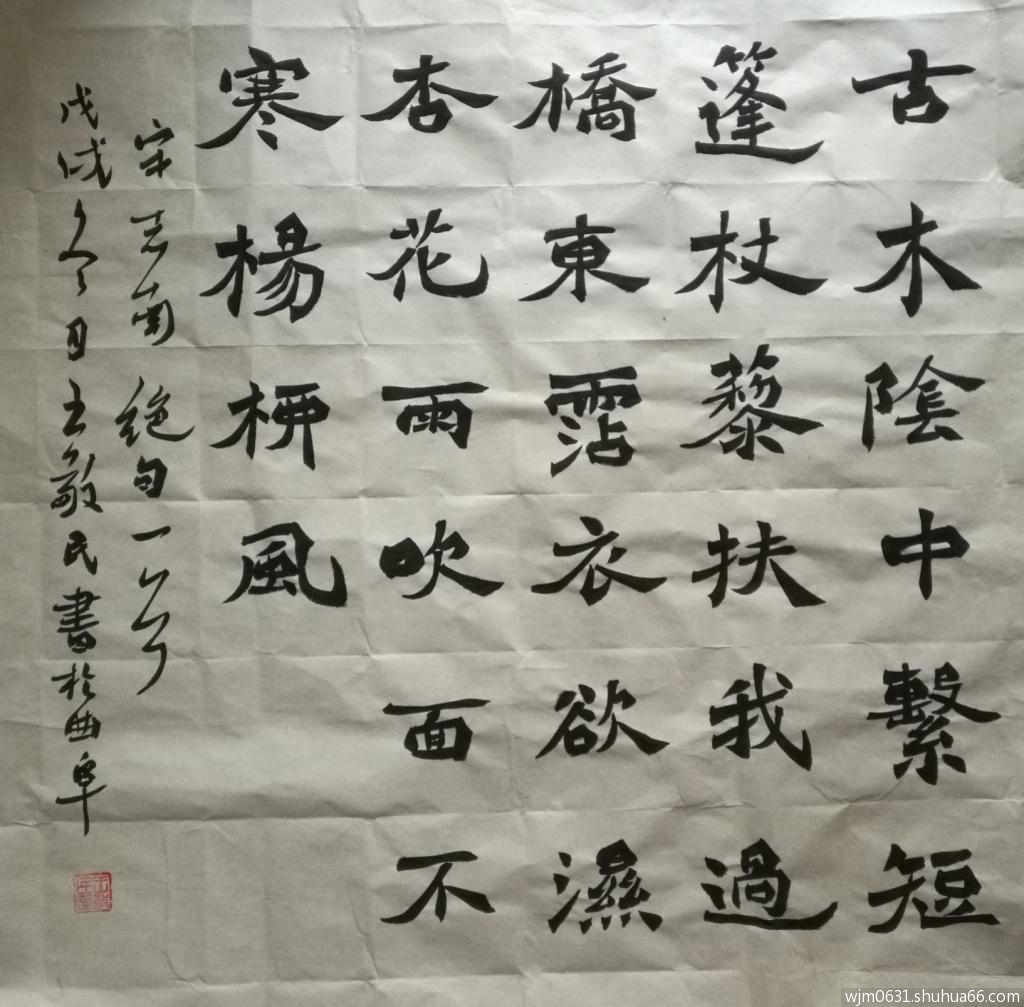 古木陰中繫短
篷杖藜扶我過
橋東霑衣欲濕
杏花雨吹面不
寒楊柳風
宋志南絕句一首
戊戌冬日王敬民書於曲阜
wjm0631.shuhua66.com